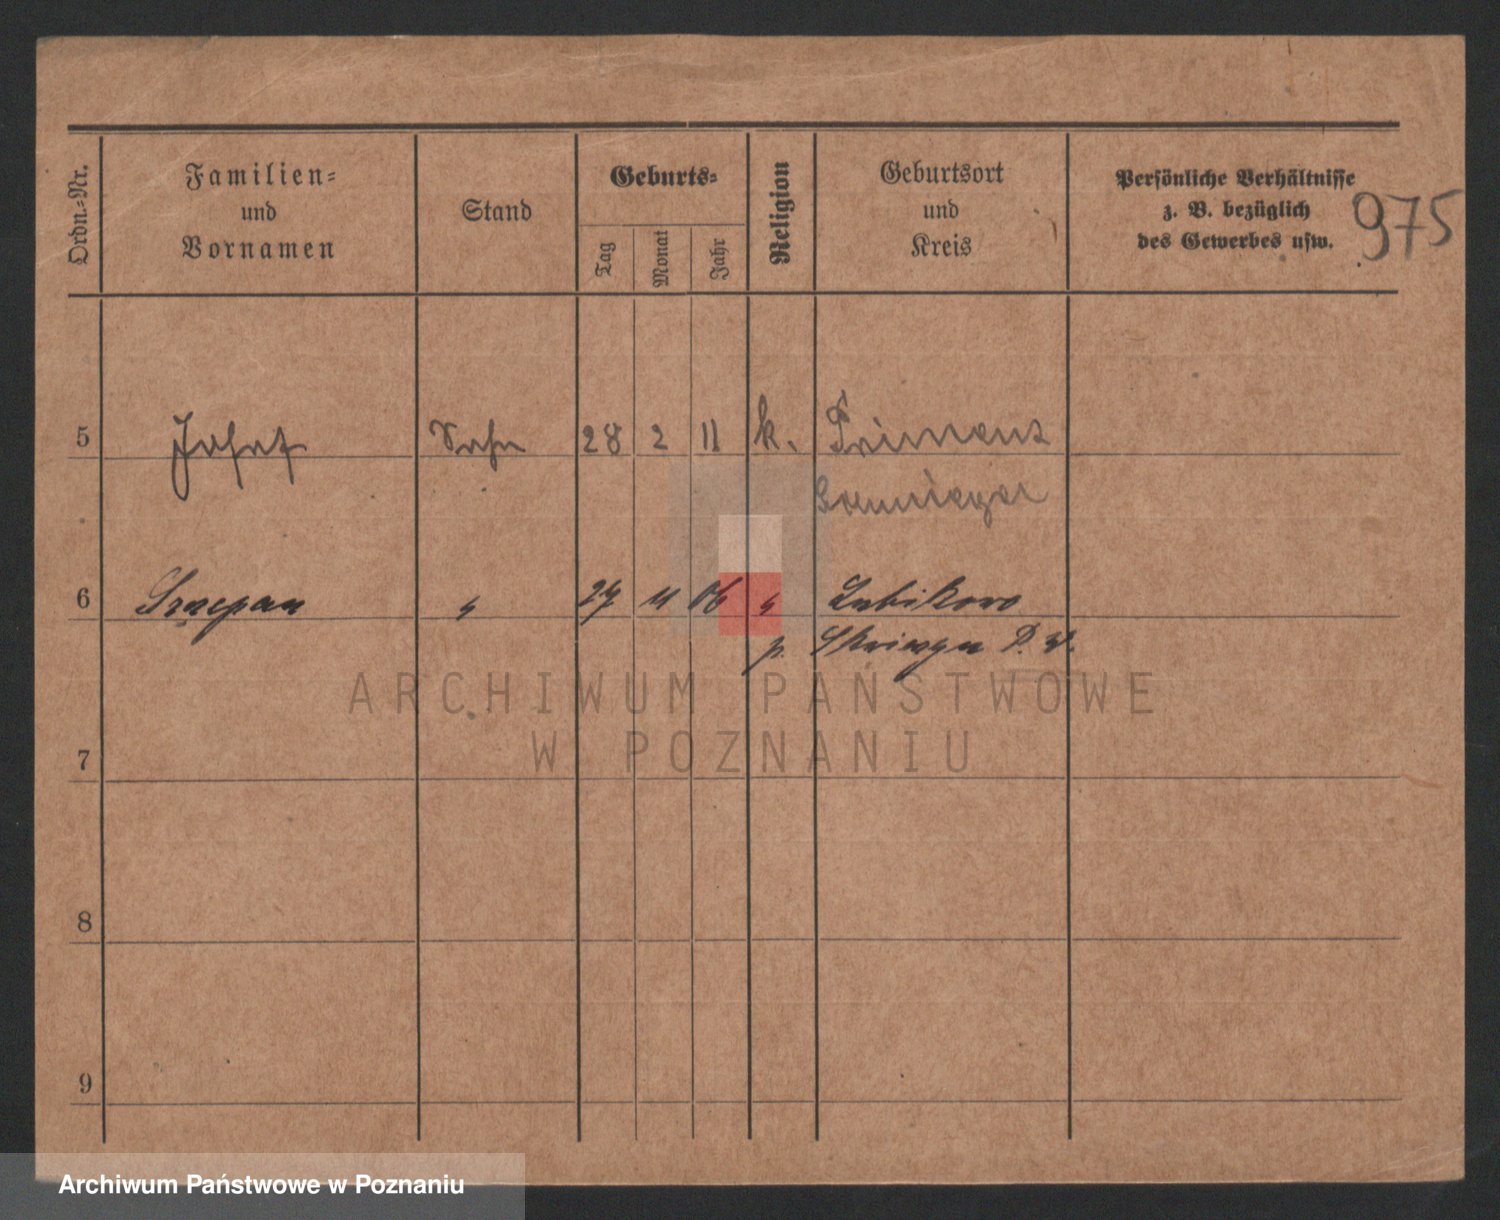 Ordn.=Nr.
Familien=
und
Vornamen
Stand
Geburts=
Tag
Monat
Jahr
Religion
Geburtsort
und
Kreis
Persönliche Verhältnisse
z. B. bezüglich
des Gewerbes usw.
975
5 Josef Sohn 28 2 11 k.
6 Szczepan " 27 11 06 " Lubikowo
p. P. W.
ARCHIWUM PAŃSTWOWE
W POZNANIU
7
8
9
Archiwum Państwowe w Poznaniu